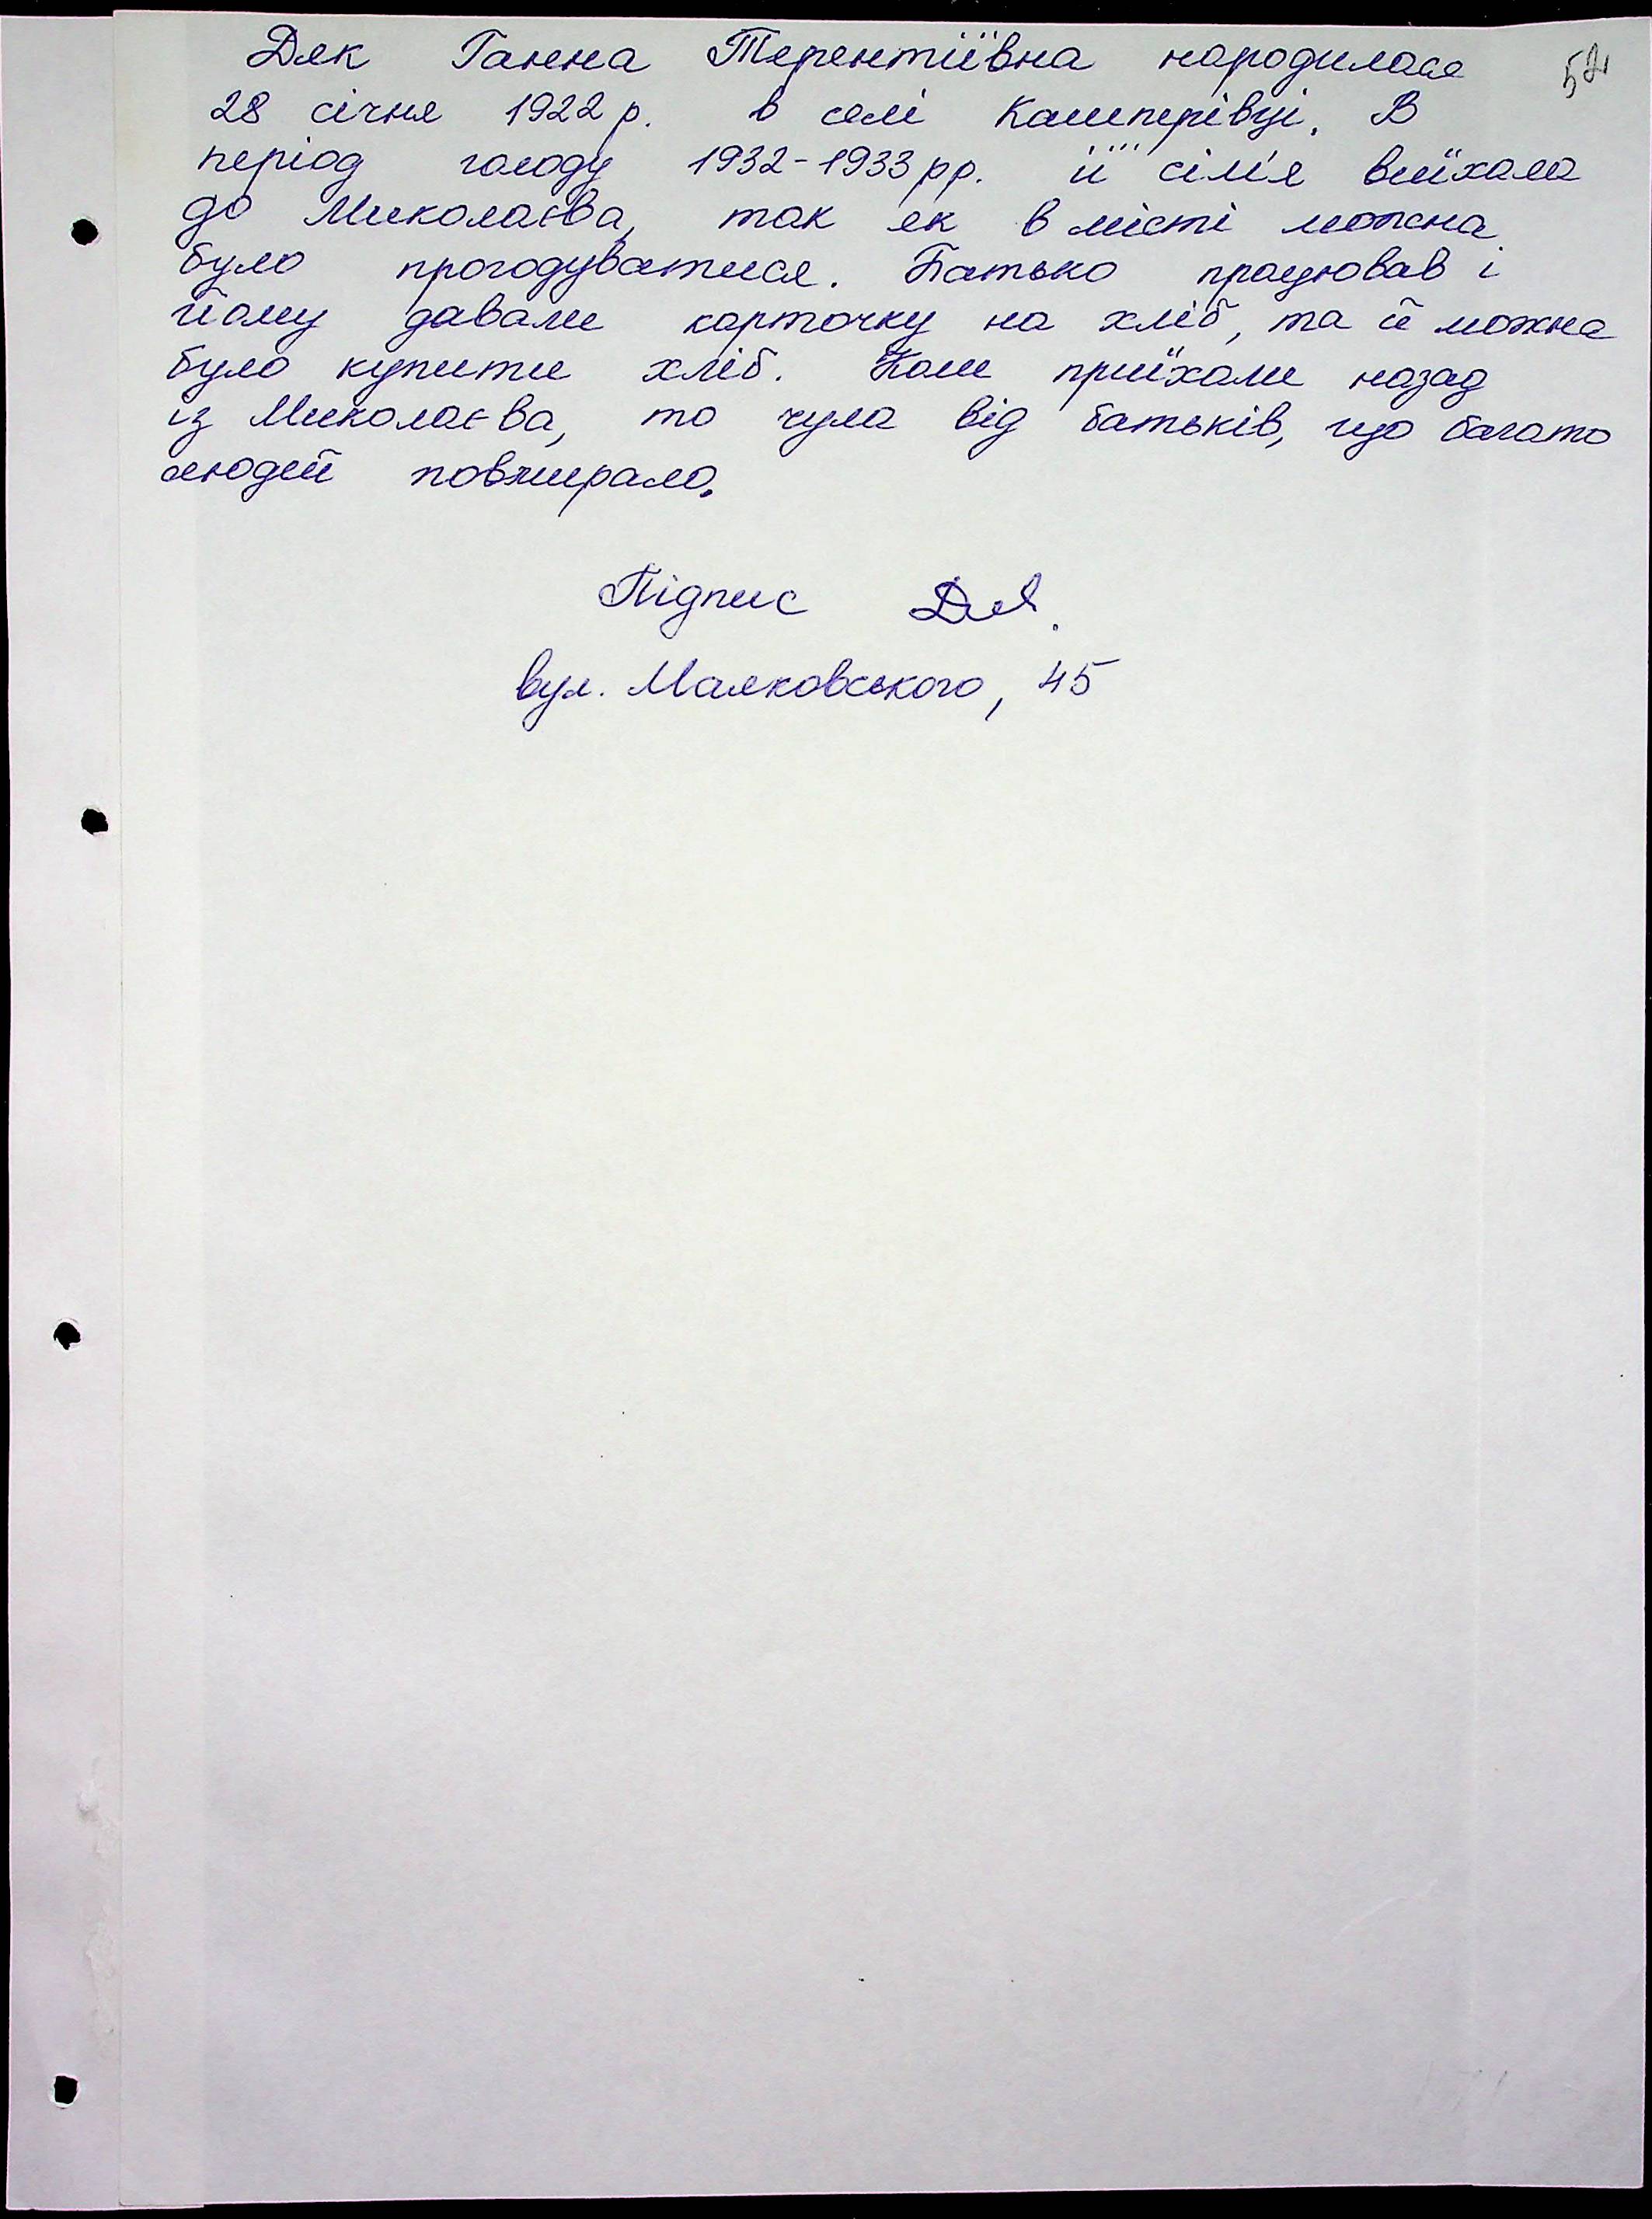 Дяк Ганна Терентіївна народилася
28 січня 1922 р. в селі Кашперівці. В
період голоду 1932-1933 рр. її сім'я виїхала
до Миколаєва, так як в місті можна
було прогодуватися. Батько працював і
йому давали карточку на хліб, та й можна
було купити хліб. Коли приїхали назад
із Миколаєва, то чула від батьків, що багато
людей повмирало.
Підпис
вул. Маяковського, 45